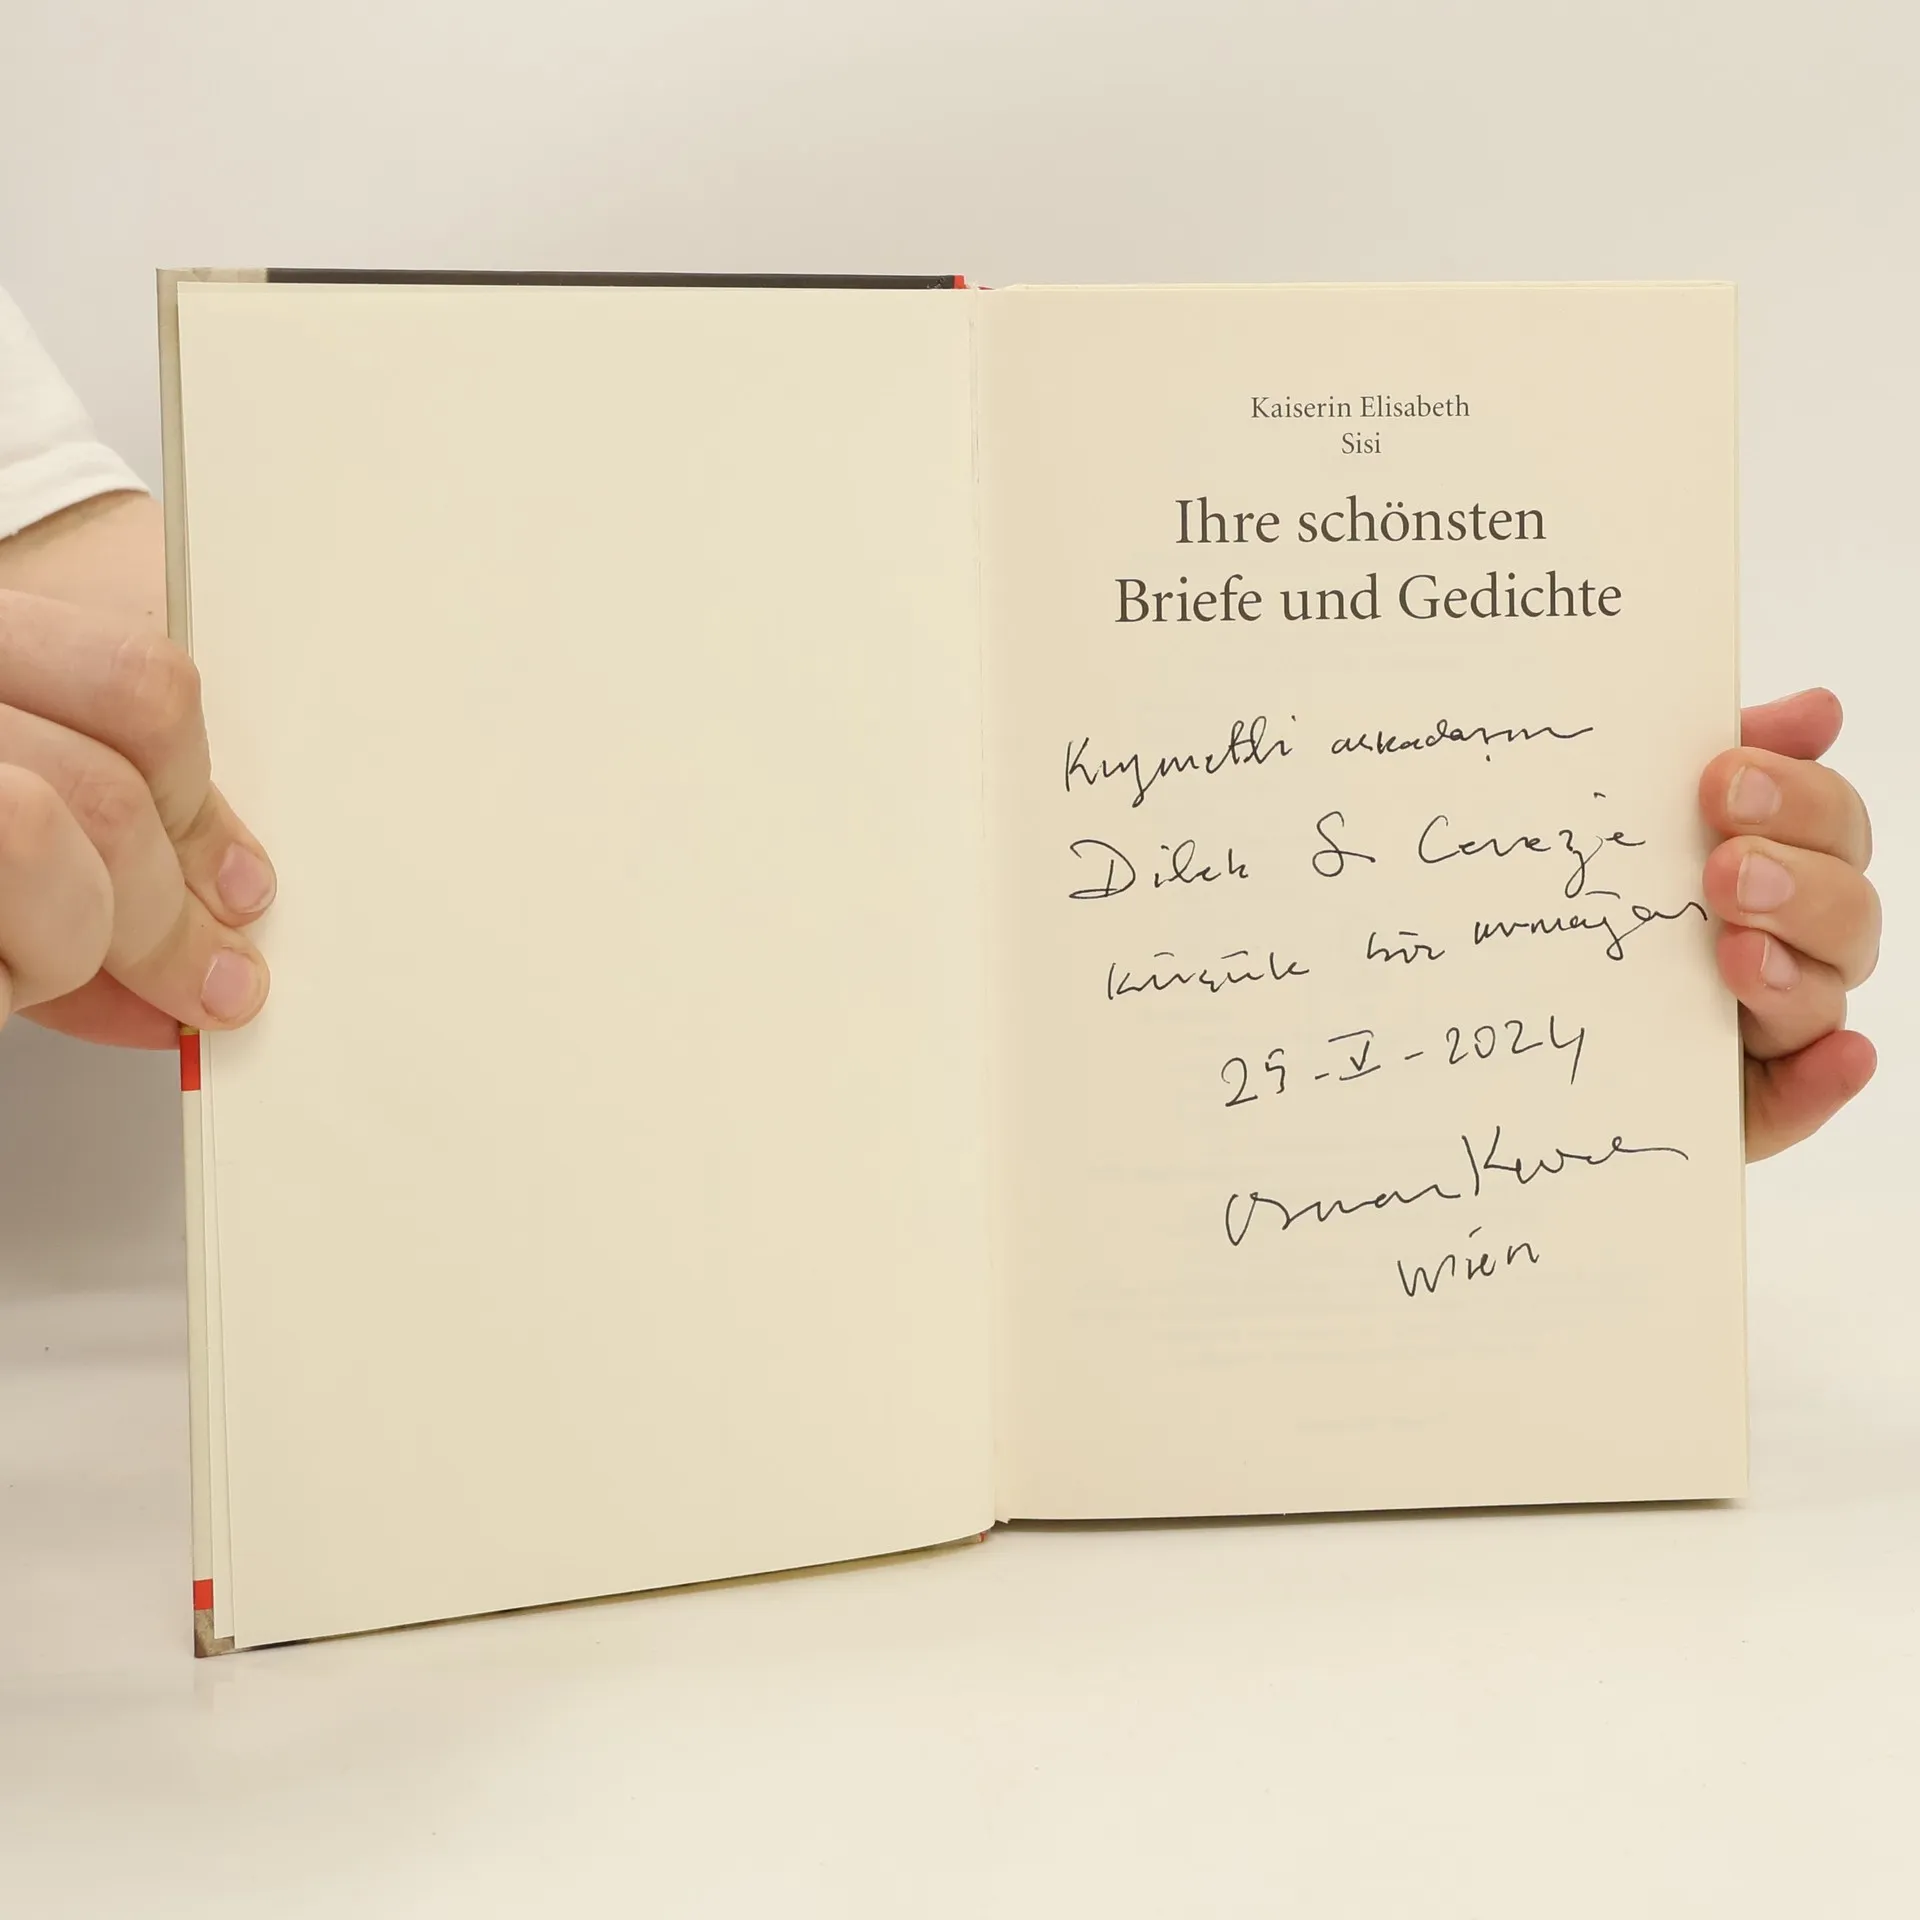 Kaiserin Elisabeth
Sisi
Ihre schönsten
Briefe und Gedichte
Kıymetli
Dilek &
küçük bir armağan
25-V-2024
Osman
Wien